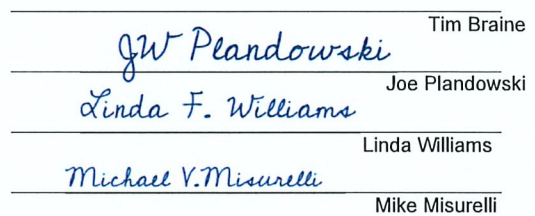 Tim Braine
JW Plandowski
Joe Plandowski
Linda F. Williams
Linda Williams
Michael V. Misurelli
Mike Misurelli